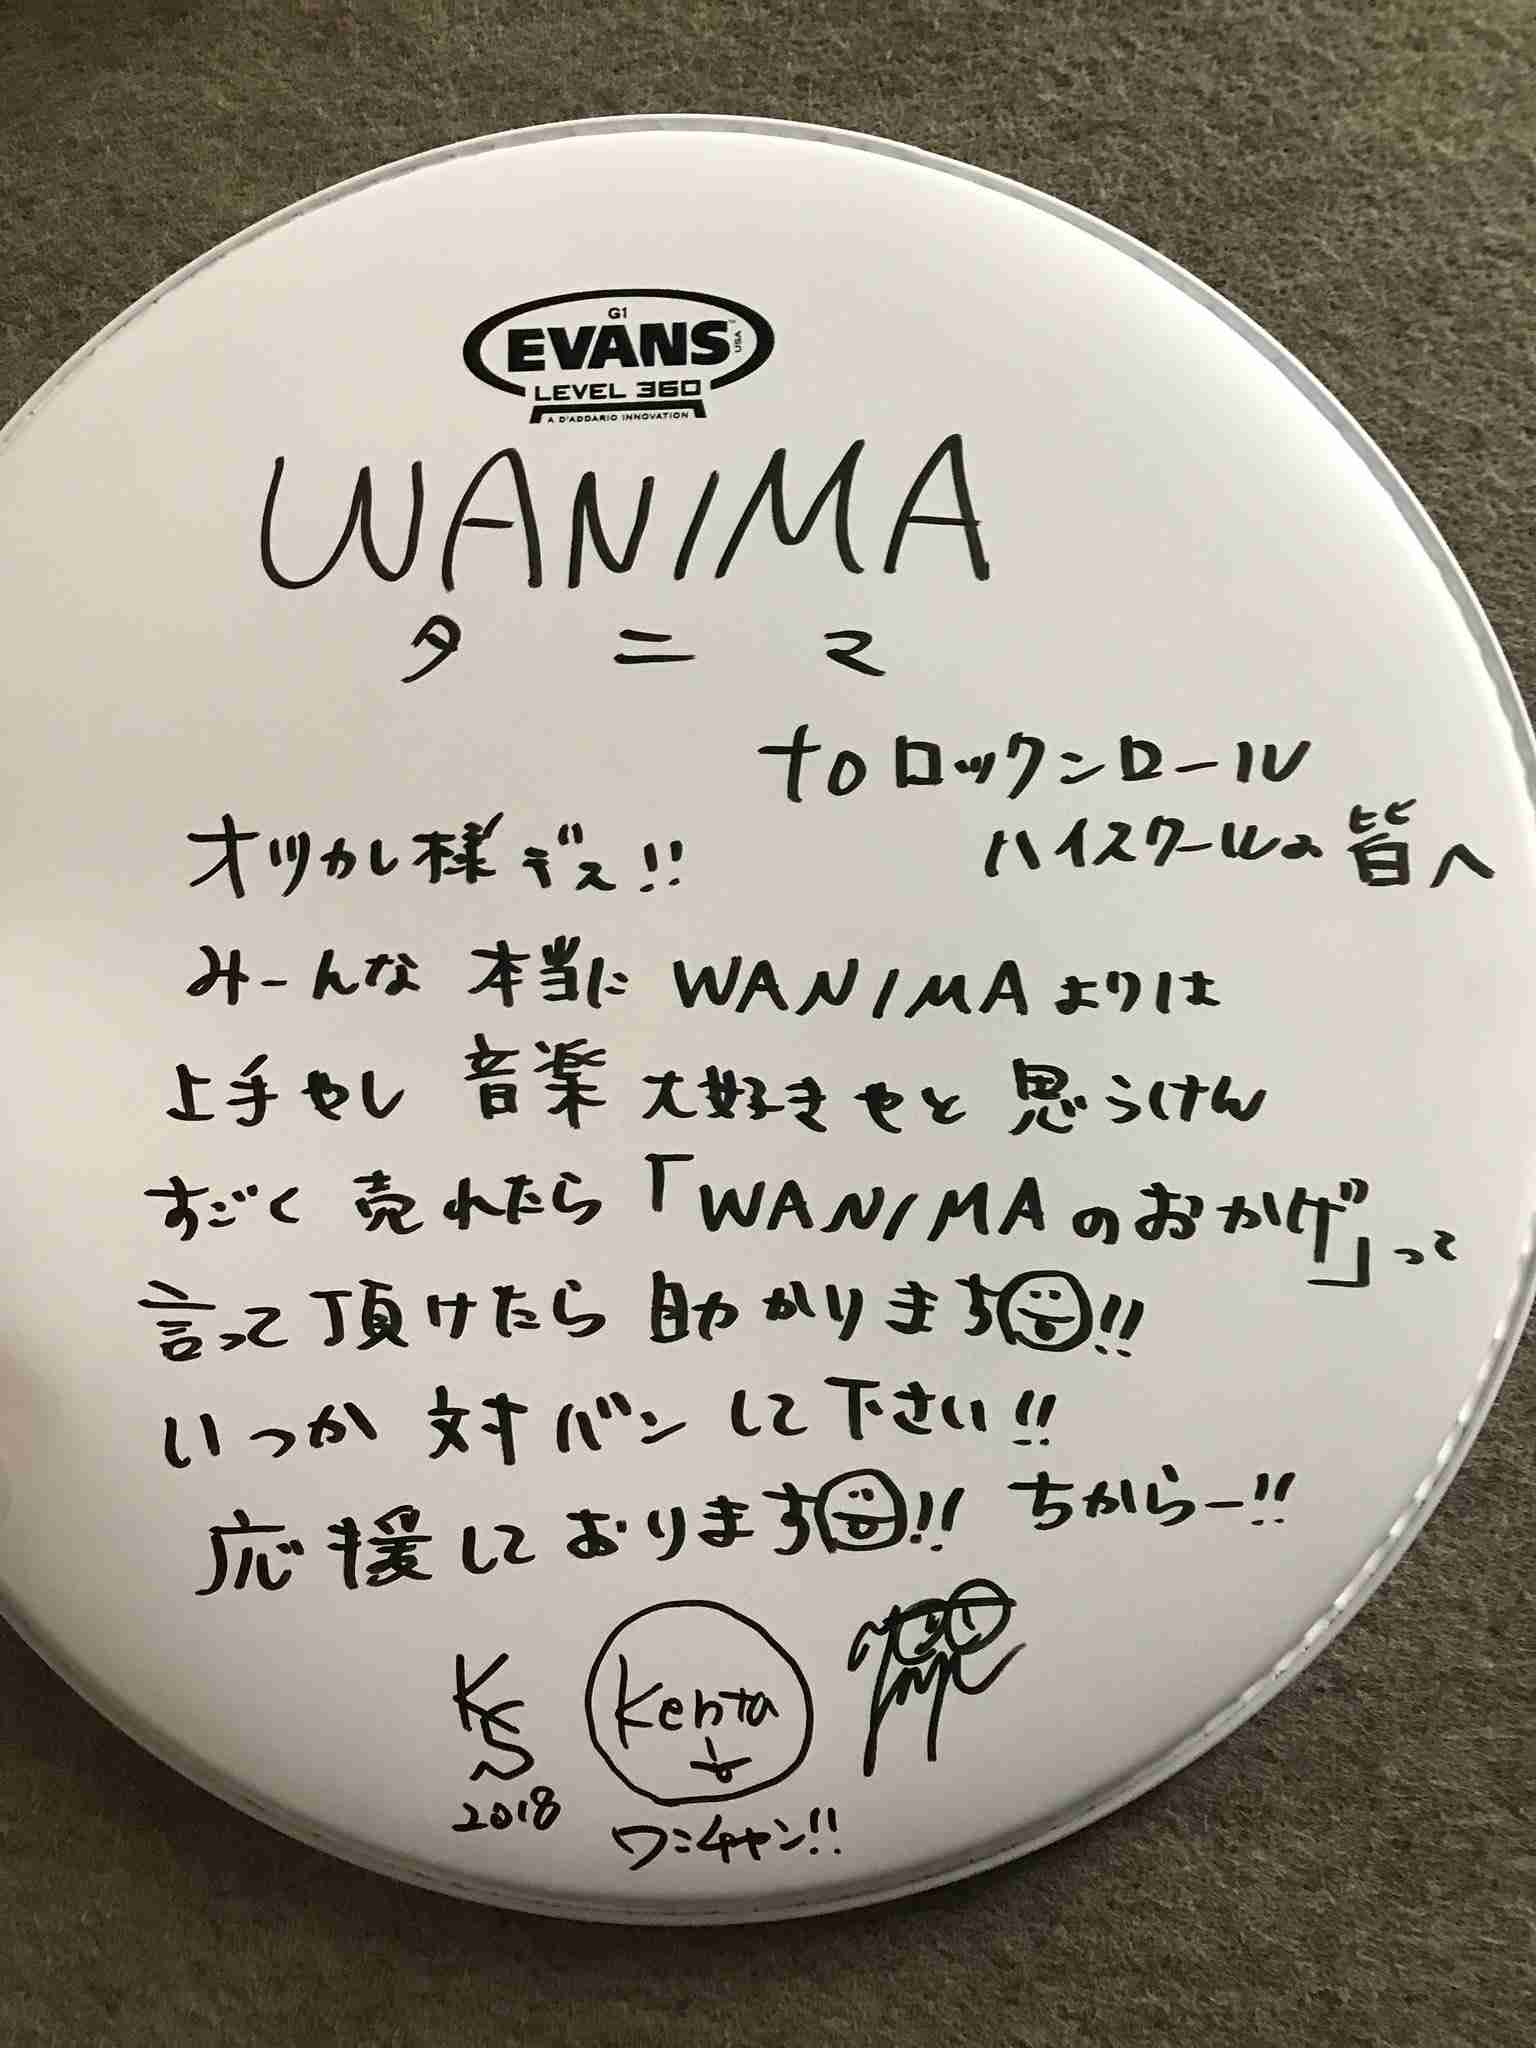 G1
EVANS™
USA
LEVEL 360
A D'ADDARIO INNOVATION
WANIMA
タニマ
to ロックンロール
ハイスクールの皆へ
オツカレ様デス!!
みーんな 本当に WANIMAよりは
上手やし 音楽 大好きやと 思うけん
すごく 売れたら「WANIMAのおかげ」って
言って頂けたら 助かります!!
いっか 対バン して 下さい!!
応援しております!! ちからー!!
KS
Kenta
2018
ワンチャン!!